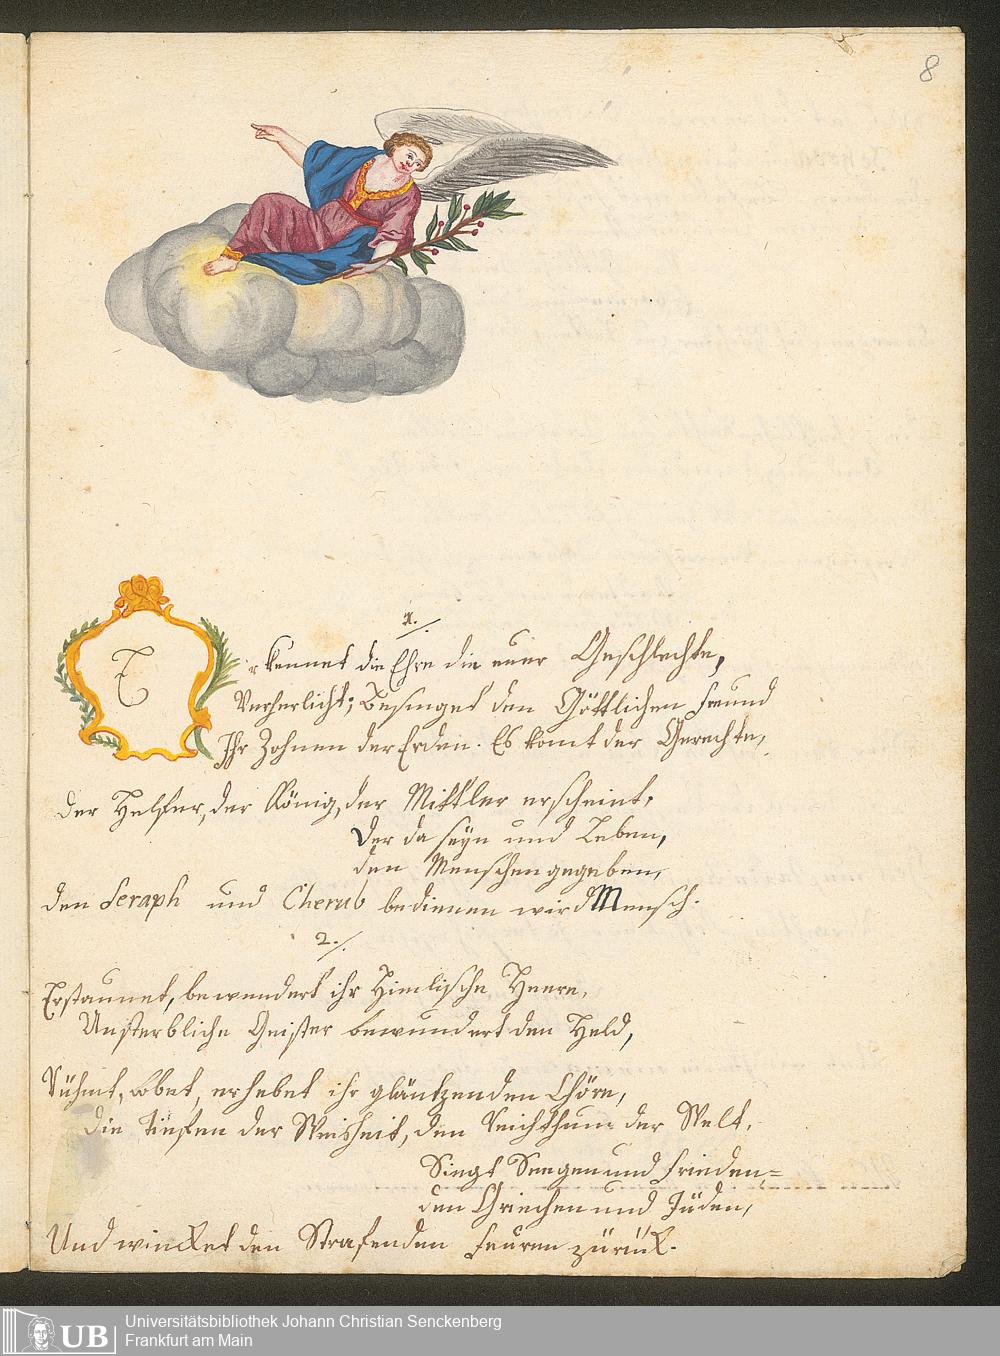 8
1./.
Erkennet die Ehre die euer Geschlechte,
Verherlicht; Besinget den Göttlichen Freund
Ihr Zohnen der Erden. Es komt der Gerechte,
der Helffer, der König, der Mittler erscheint,
Der da seyn und Leben,
den Menschen gegeben,
den Seraph und Cherub bedienen wird Mensch.
2./.
Erstaunet, bewundert ihr Himlische Heere,
Unsterbliche Geister bewundert den Held,
Rühmt, Lobet, erhebet ihr gläntzenden Chöre,
die Tieffen der Weisheit, den Reichthum der Welt,
Singt Seegen und Frieden,=
den Griechen und Jüden,
Und wincket den Strafenden Feuren zürük.
UB
Universitätsbibliothek Johann Christian Senckenberg
Frankfurt am Main